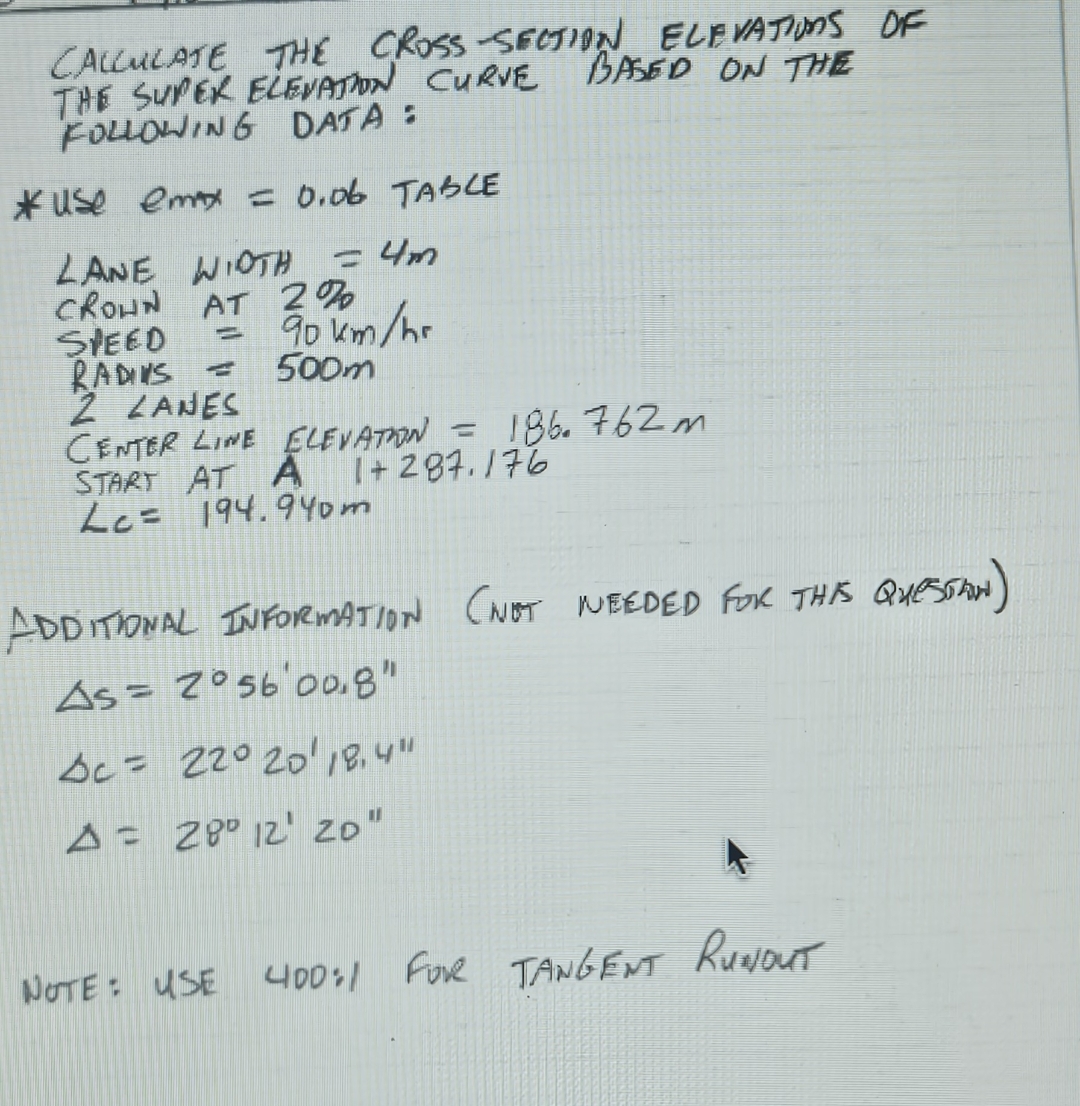 CALCULATE THE CROSS-SECTION ELEVATIONS OF
THE SUPER ELEVATION CURVE BASED ON THE
FOLLOWING DATA:
* USE emax = 0.06 TABLE
LANE WIDTH = 4m
CROWN AT 2%
SPEED = 90 km/hr
RADIUS = 500m
2 LANES
CENTER LINE ELEVATION = 186.762 m
START AT A 1+287.176
Lc = 194.940m
ADDITIONAL INFORMATION (NOT NEEDED FOR THIS QUESTION)
Δs = 2° 56' 00.8"
Δc = 22° 20' 18.4"
Δ = 28° 12' 20"
NOTE: USE 400:1 FOR TANGENT RUNOUT